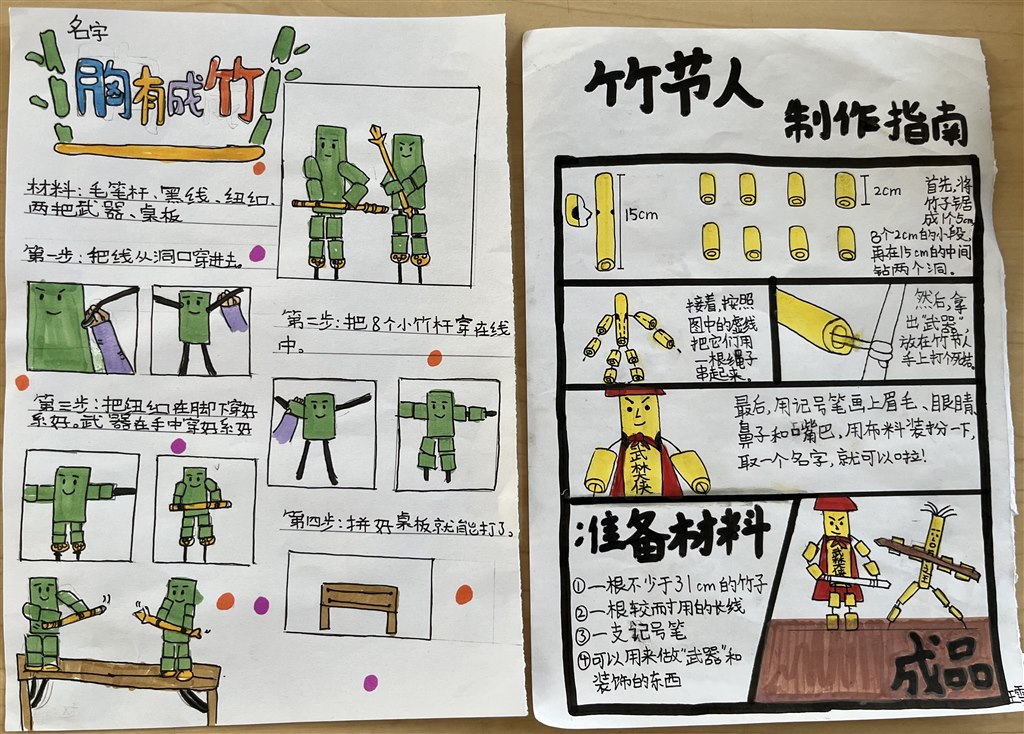 名字
胸有成竹
材料：毛笔杆、黑线、纽扣、
两把武器、桌板
第一步：把线从洞口穿进去。
第二步：把8个小竹杆穿在线
中。
第三步：把纽扣在脚下穿好
系好。武器在手中穿好系好
第四步：拼好桌板就能打了。
竹节人
制作指南
15cm
2cm
首先，将
竹子锯
成1个15cm
8个2cm的小段，
再在15cm的中间
钻两个洞。
接着，按照
图中的虚线
把它们用
一根绳子
串起来。
然后，拿
出“武器”，
放在竹节人
手上打个死结。
最后，用记号笔画上眉毛、眼睛、
鼻子和嘴巴，用布料装扮一下，
取一个名字，就可以啦！
武林大侠
准备材料
①一根不少于31cm的竹子
②一根较耐用的长线
③一支记号笔
④可以用来做“武器”和
装饰的东西
成品